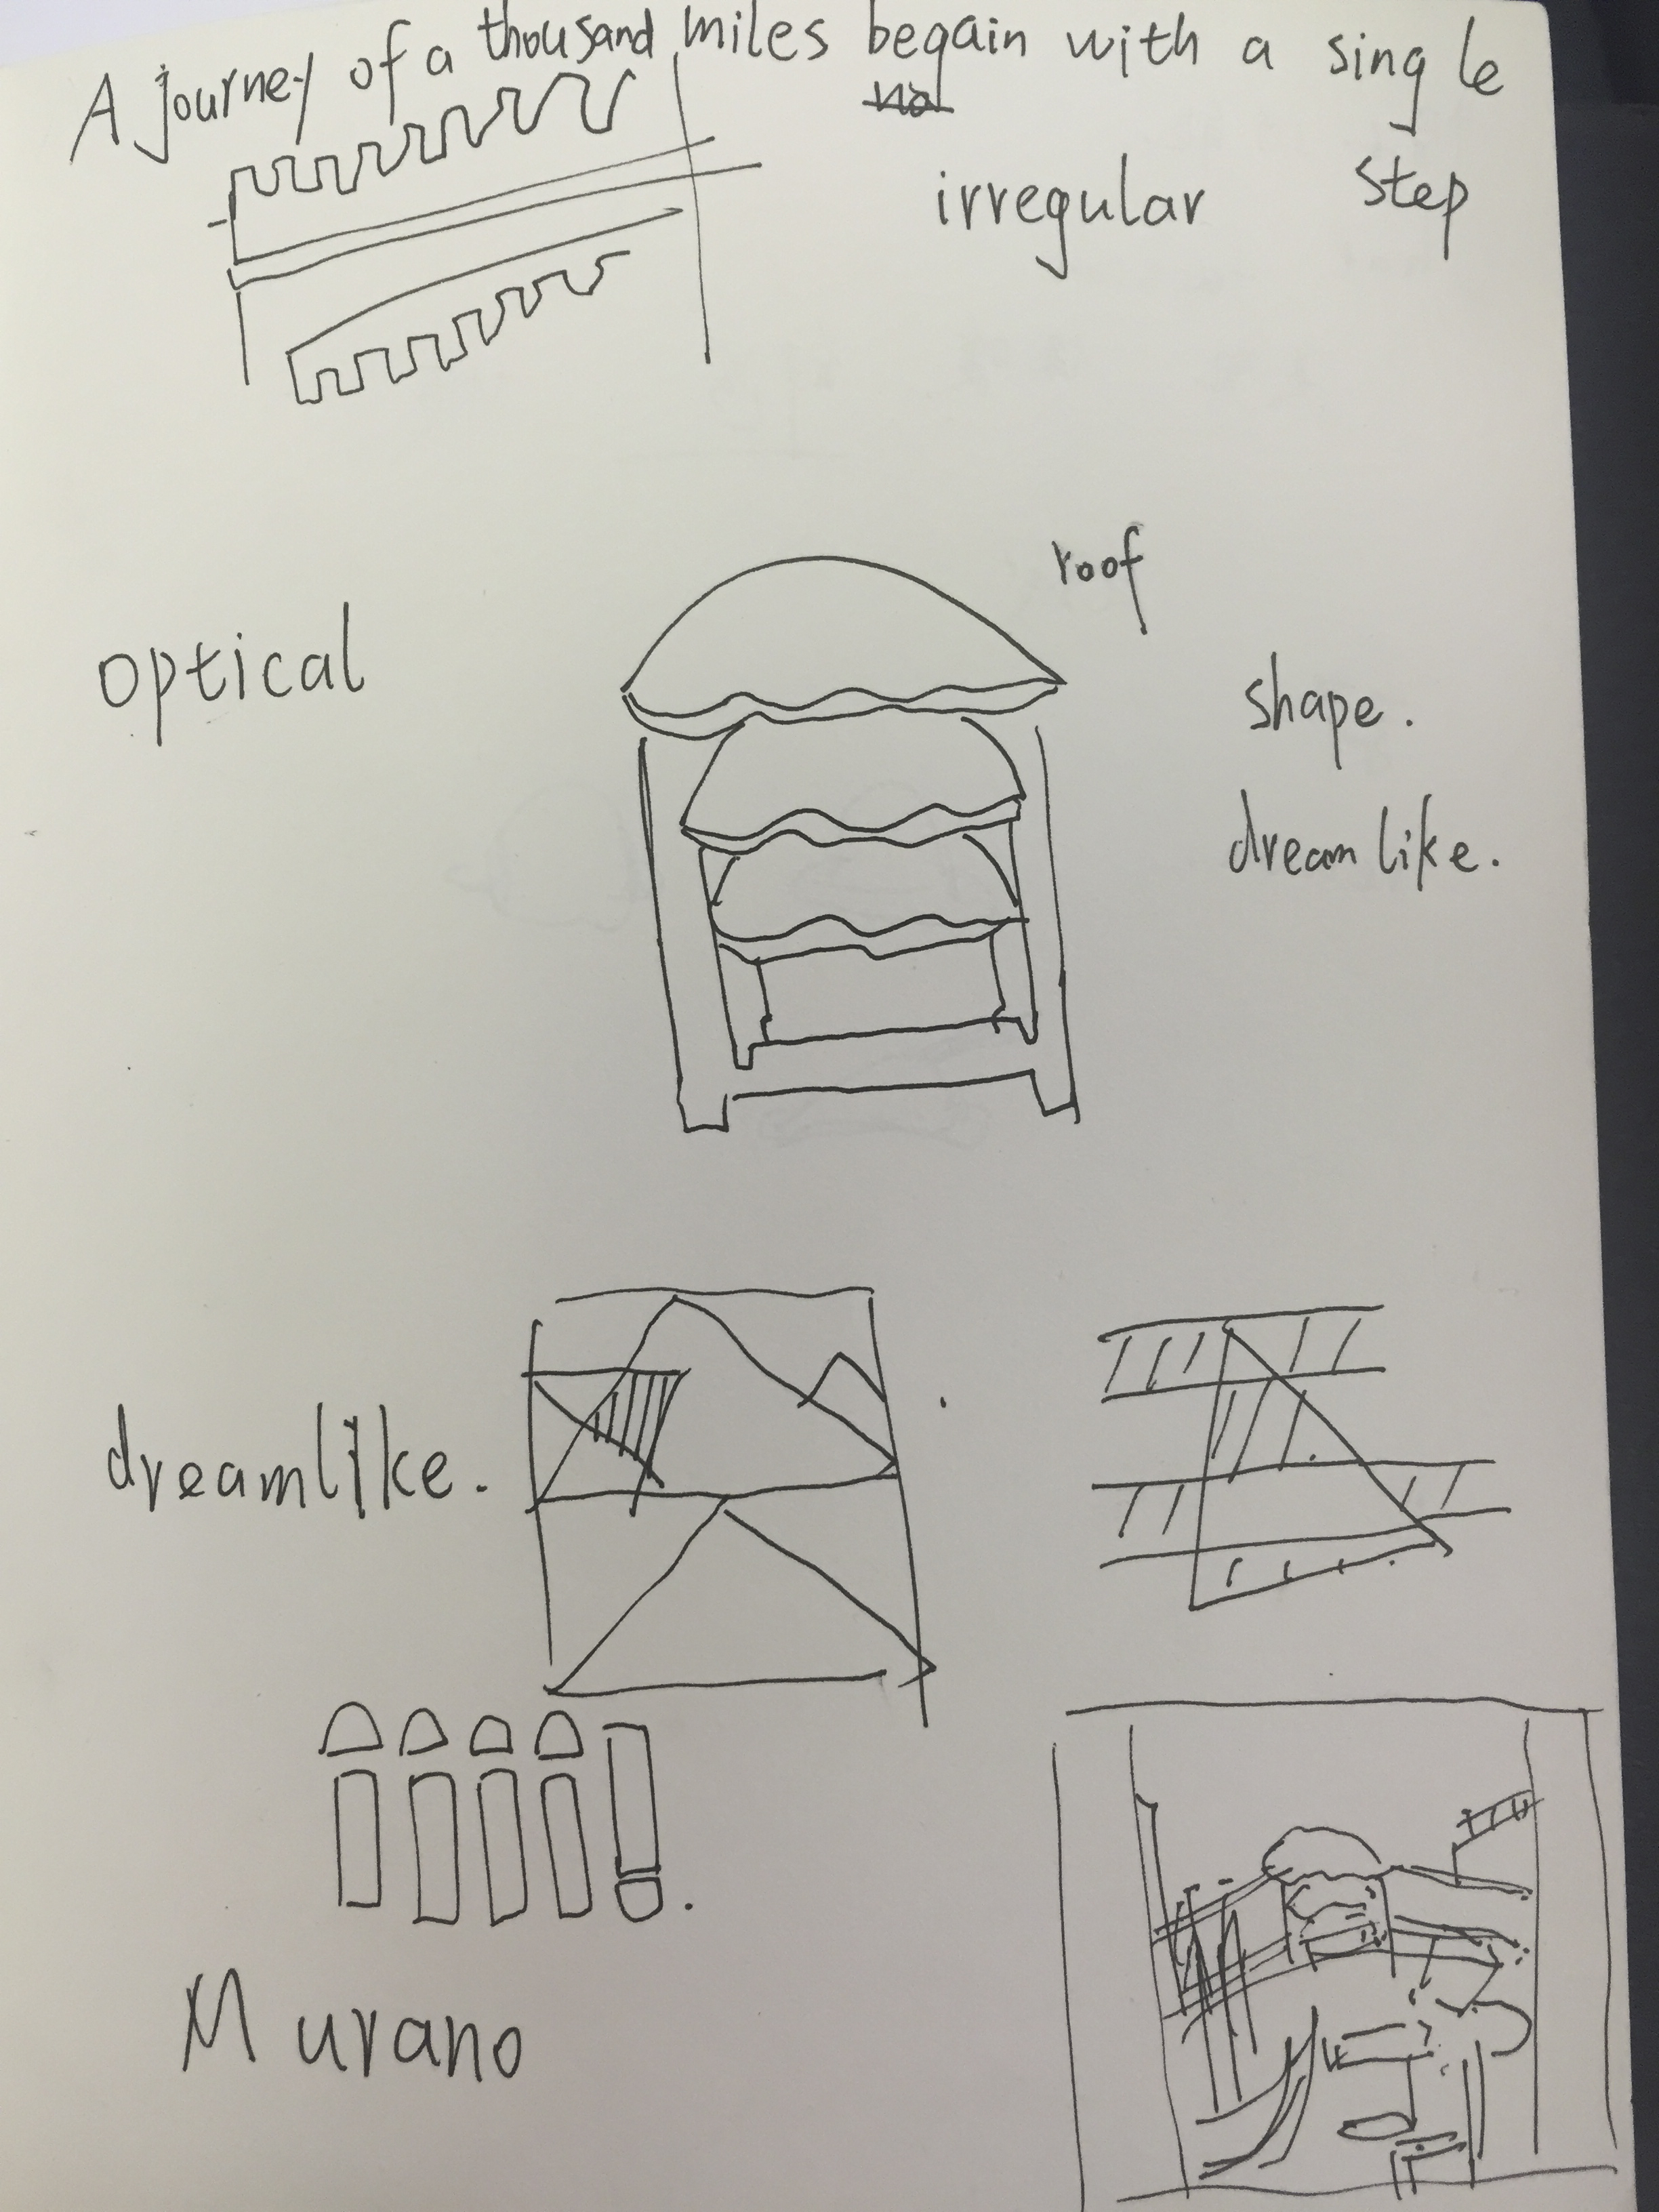 A journey of a thousand miles begain with a single
step
irregular
roof
optical
shape.
dreamlike.
dreamlike.
Murano